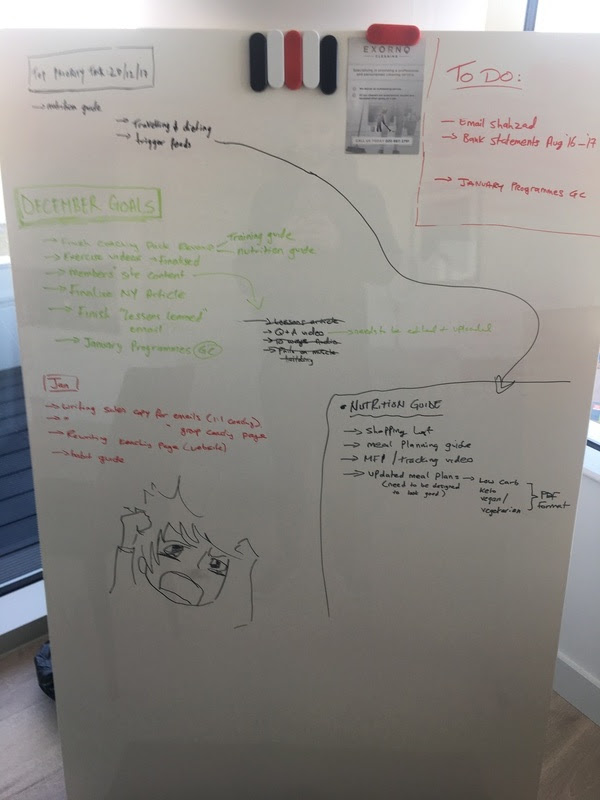 Top Priority Task: 28/12/17
→ nutrition guide
→ Travelling & dieting
→ trigger foods
EXORNO
CLEANING
TO DO:
→ Email Shahzad
→ Bank statements Aug '16 - '17
→ JANUARY Programmes GC
DECEMBER GOALS
→ Finish Coaching Pack
Training guide
nutrition guide
→ Exercise videos → finalised
→ Members' site content
→ Finalise NY Article
→ Finish "lesson learned" email
→ January Programmes GC
→ Lessons article
→ Q+A video → needs to be edited + uploaded
→ muscle building
Jan
→ Writing sales copy for emails (1:1 coaching)
→ " " group coaching page
→ Rewriting coaching page (website)
→ guide
• NUTRITION GUIDE
→ Shopping list
→ meal planning guide
→ MFP / tracking video
→ updated meal plans → Low carb
(need to be designed to look good)
keto
vegan/
vegetarian
PDF format